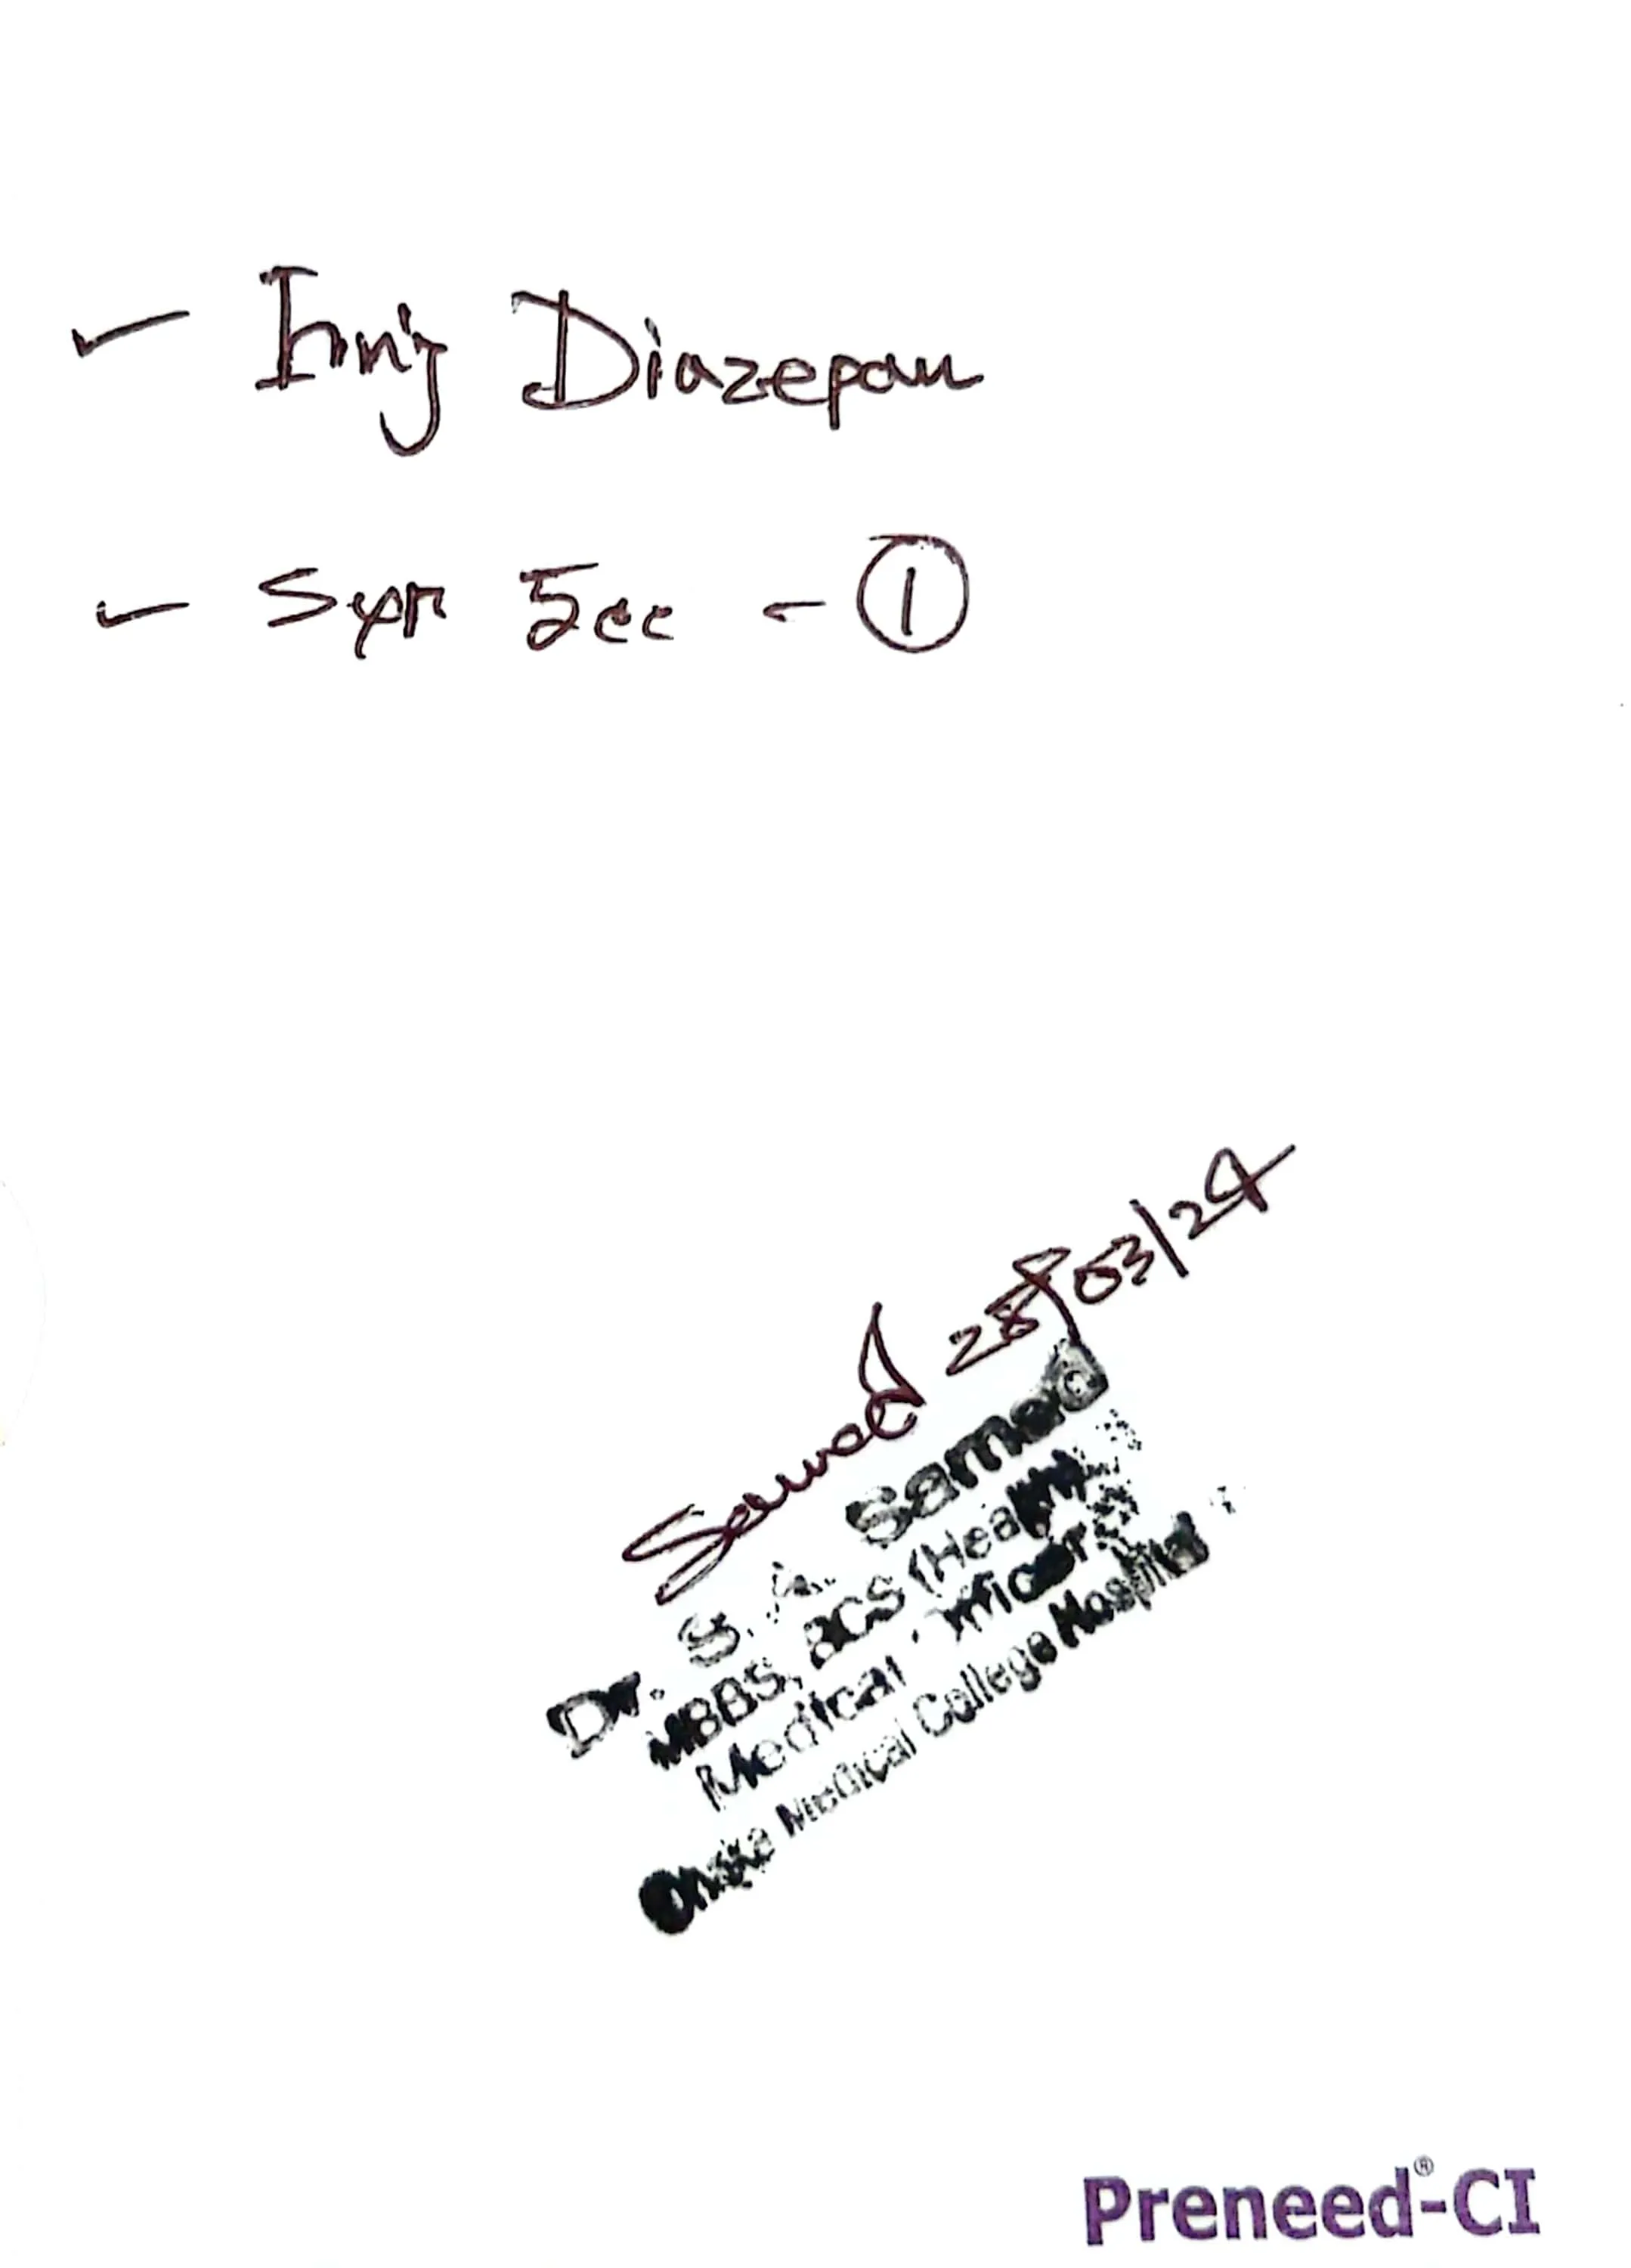 - Inj Diazepam
- Syr 5cc - ①
Samad 28/03/24
Dr. S. A. Samad
MBBS, BCS (Health)
Medical Officer
Dhaka Medical College Hospital
Preneed®-CI